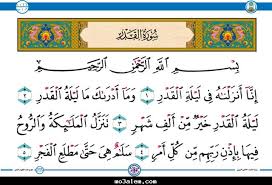 سُورَةُ القَدْرِ
بِسْمِ اللَّهِ الرَّحْمَٰنِ الرَّحِيمِ
إِنَّا أَنزَلْنَاهُ فِي لَيْلَةِ الْقَدْرِ ١ وَمَا أَدْرَاكَ مَا لَيْلَةُ الْقَدْرِ
٢ لَيْلَةُ الْقَدْرِ خَيْرٌ مِّنْ أَلْفِ شَهْرٍ ٣ تَنَزَّلُ الْمَلَائِكَةُ وَالرُّوحُ
فِيهَا بِإِذْنِ رَبِّهِم مِّن كُلِّ أَمْرٍ ٤ سَلَامٌ هِيَ حَتَّىٰ مَطْلَعِ الْفَجْرِ ٥
mo3alem.com